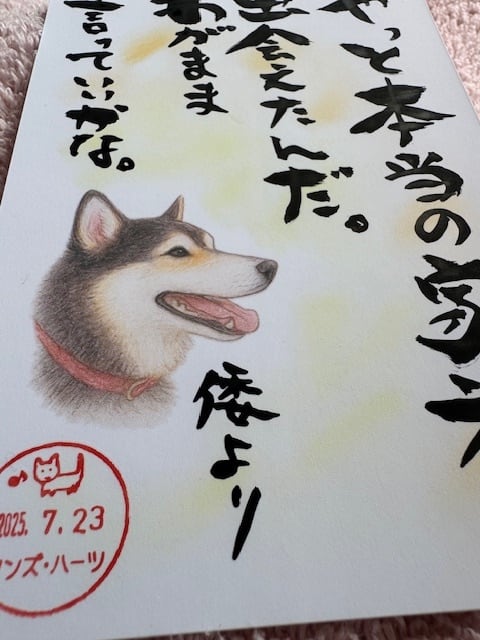 やっと本当の家
出会えたんだ。
わがまま
言っていいかな。
倭より
2025. 7. 23
ンズ・ハーツ